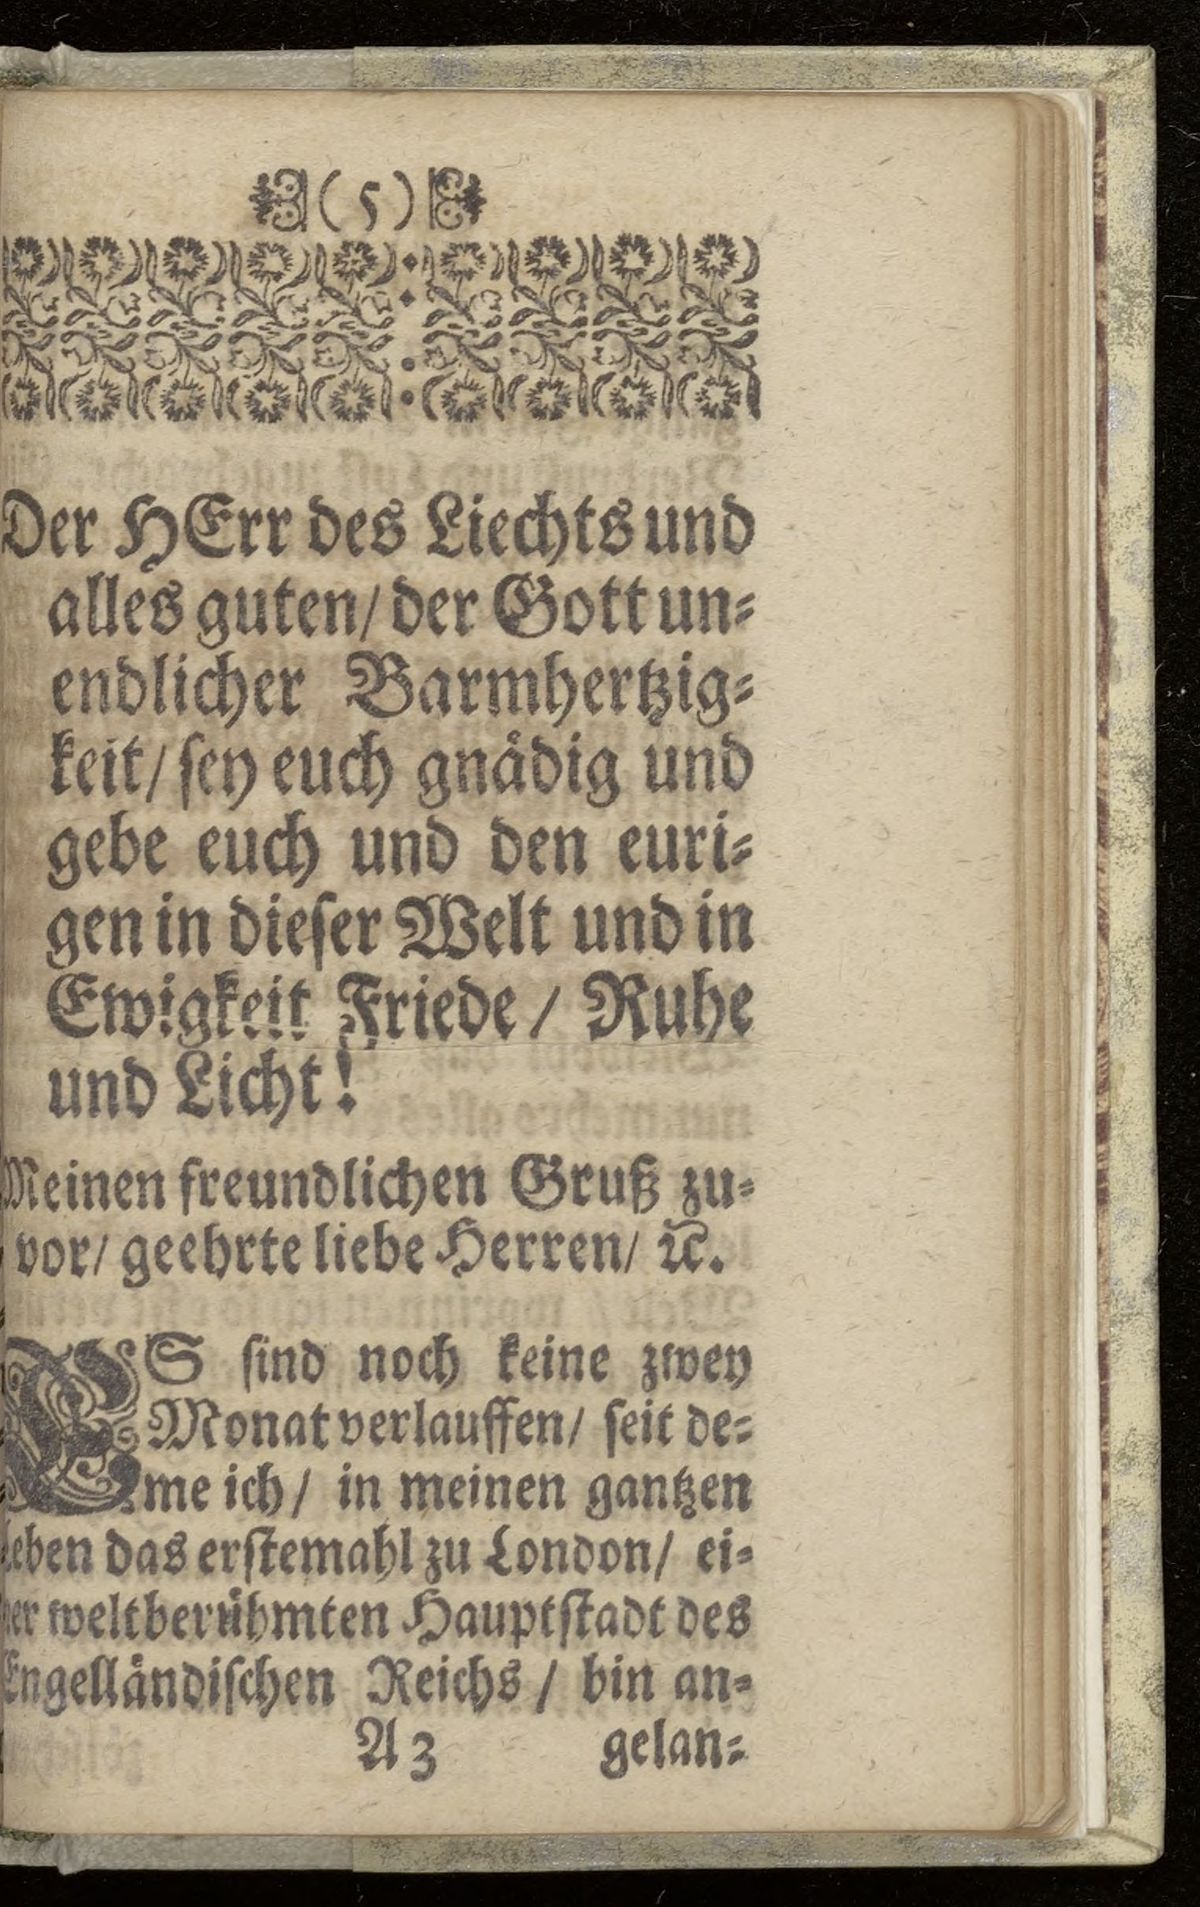 ( 5 )
Der HErr des Liechts und
alles guten/ der Gott un⸗
endlicher Barmhertzig⸗
keit/ ſey euch gnaͤdig und
gebe euch und den euri⸗
gen in dieſer Welt und in
Ewigkeit Friede / Ruhe
und Licht!
Meinen freundlichen Gruß zu⸗
vor/ geehrte liebe Herren/ ꝛc.
ES ſind noch keine zwey
Monat verlauffen/ ſeit de⸗
me ich/ in meinen gantzen
Leben das erſtemahl zu London/ ei⸗
ner weltberuͤhmten Hauptſtadt des
Engellaͤndiſchen Reichs / bin an⸗
A 3 gelan⸗